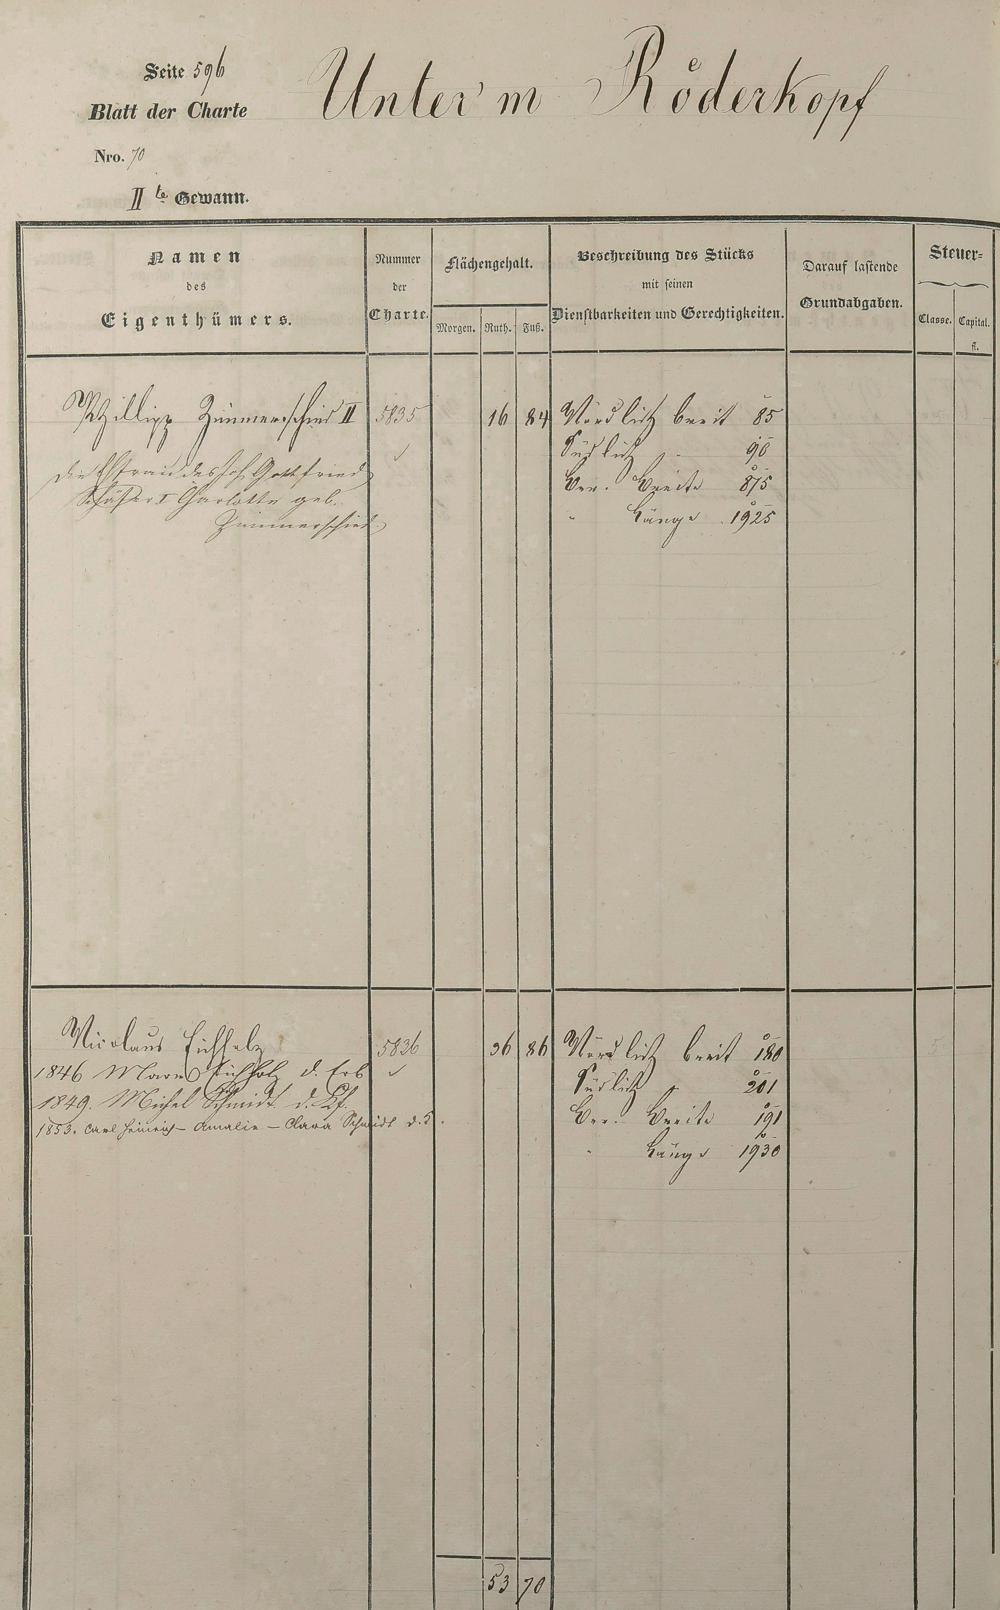 Seite 596
Unter'm Röderkopf
Blatt der Charte
Nro. 70
II te Gewann.
Namen des Eigenthümers.
Nummer der Charte.
Flächengehalt.
Morgen. Ruth. Fuß.
Beschreibung des Stücks mit seinen Dienstbarkeiten und Gerechtigkeiten.
Darauf lastende Grundabgaben.
Steuer-
Classe. Capital. fl.
Philipp Zimmerschied II 5835 16 84 Nördlich breit 85
Südlich " 90
die Ehefrau des Joh. Gottfried
Ver. Breite 875
Schäfer I Charlotte geb.
" Länge 1925
Zimmerschied.
Nicolaus Eichholz 5836 36 86 Nördlich breit 180
1846 Eichholz d. Erb
Südlich " 201
1849. Michel Schmidt d. Kf.
Ver. Breite 191
1853. Carl Heinrich - Amalie - Clara Schmidt d. S.
" Länge 1930
53 70